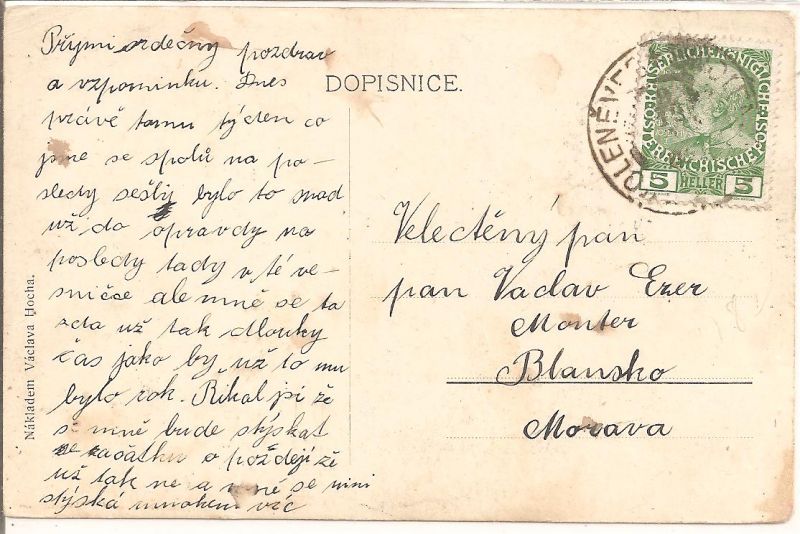 Přijmi srdečný pozdrav
a vzpomínku. Dnes
právě tomu týden co
jsme se spolů na po-
sledy sešly bylo to snad
už do opravdy na
posledy tady v té ve-
sničce ale mně se to
zdá už tak dlouhý
čas jako by už to mu
bylo rok. Říkal jsi že
se mně bude stýskat
ze začátku a později že
už tak ne a mně se nini
stýská mnohem víc
Nákladem Václava Hocha.
DOPISNICE.
KAISERLICHE KÖNIGLICHE
ÖSTERREICHISCHE
5 HELLER 5
Velectěný pan
pan Vaclav Ezer
Monter
Blansko
Morava